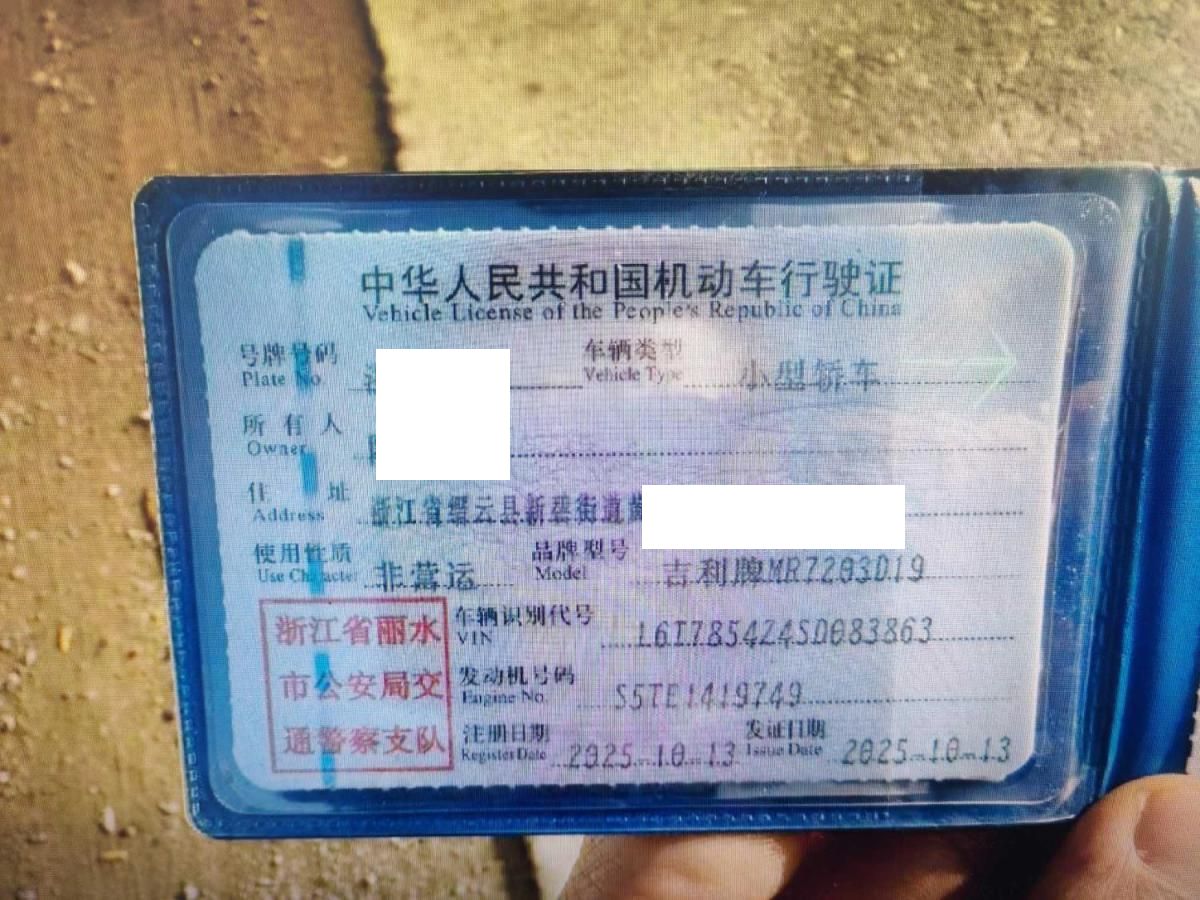 中华人民共和国机动车行驶证
Vehicle License of the People's Republic of China
号牌号码 车辆类型 小型轿车
Plate No. Vehicle Type
所有人
Owner
住址 浙江省缙云县新碧街道
Address
使用性质 非营运 品牌型号 吉利牌MR7203D19
Use Character Model
浙江省丽水
市公安局交
通警察支队
车辆识别代号 L6T7854Z4SD083863
VIN
发动机号码 S5TE1419749
Engine No.
注册日期 2025-10-13 发证日期 2025-10-13
Register Date Issue Date